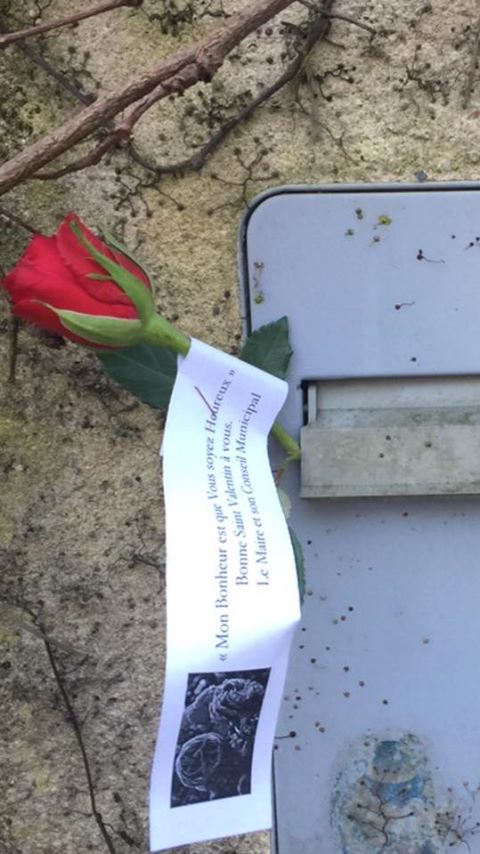 « Mon Bonheur est que Vous soyez Heureux »
Bonne Saint Valentin à vous,
Le Maire et son Conseil Municipal